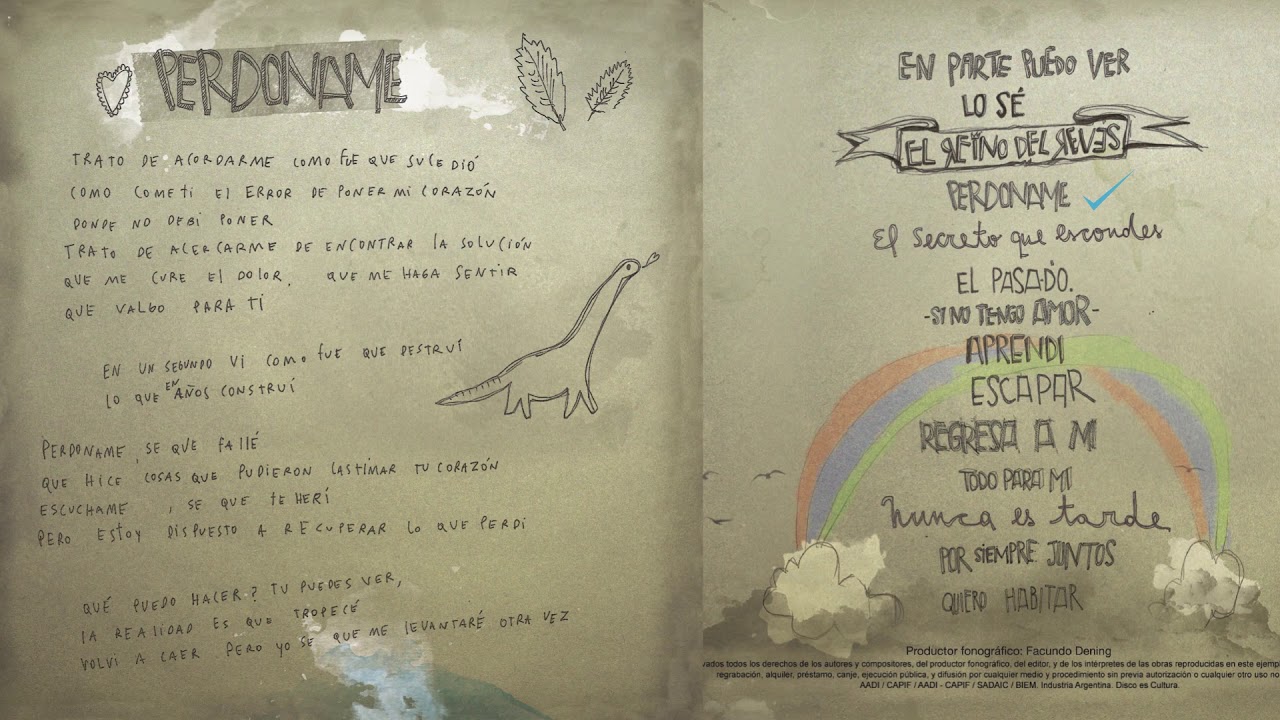 PERDONAME
TRATO DE ACORDARME COMO FUE QUE SUCEDIÓ
COMO COMETI El ERROR DE PONER MI CORAZÓN
DONDE NO DEBI PONER
TRATO DE ACERCARME DE ENCONTRAR lA SOLUCIÓN
QUE ME CURE El DOLOR, QUE ME HAGA SENTIR
QUE VALGO PARA TÍ
EN UN SEGUNDO VI COMO FUE QUE DESTRUÍ
lO QUE EN AÑOS CONSTRUÍ
PERDONAME, SE QUE FALLÉ
QUE HICE COSAS QUE PUDIERON LASTIMAR TU CORAZÓN
ESCUCHAME, SE QUE TE HERÍ
PERO ESTOY DISPUESTO A RECUPERAR lO QUE PERDI
QUÉ PUEDO HACER? TU PUEDES VER,
lA REALIDAD ES QUE TROPECÉ
VOLVI A CAER PERO YO SE QUE ME lEVANTARÉ OTRA VEZ
EN PARTE PUEDO VER
LO SÉ
EL REINO DEL REVÉS
PERDONAME
El Secreto que escondes
EL PASADO.
-SI NO TENGO AMOR-
APRENDI
ESCAPAR
REGRESA A MI
TODO PARA MI
Nunca es tarde
POR SIEMPRE JUNTOS
QUIERO HABITAR
Productor fonográfico: Facundo Dening
vados todos los derechos de los autores y compositores, del productor fonográfico, del editor, y de los intérpretes de las obras reproducidas en este ejemp
regrabación, alquiler, préstamo, canje, ejecución pública, y difusión por cualquier medio y procedimiento sin previa autorización o cualquier otro uso no
AADI / CAPIF / AADI - CAPIF / SADAIC / BIEM. Industria Argentina. Disco es Cultura.